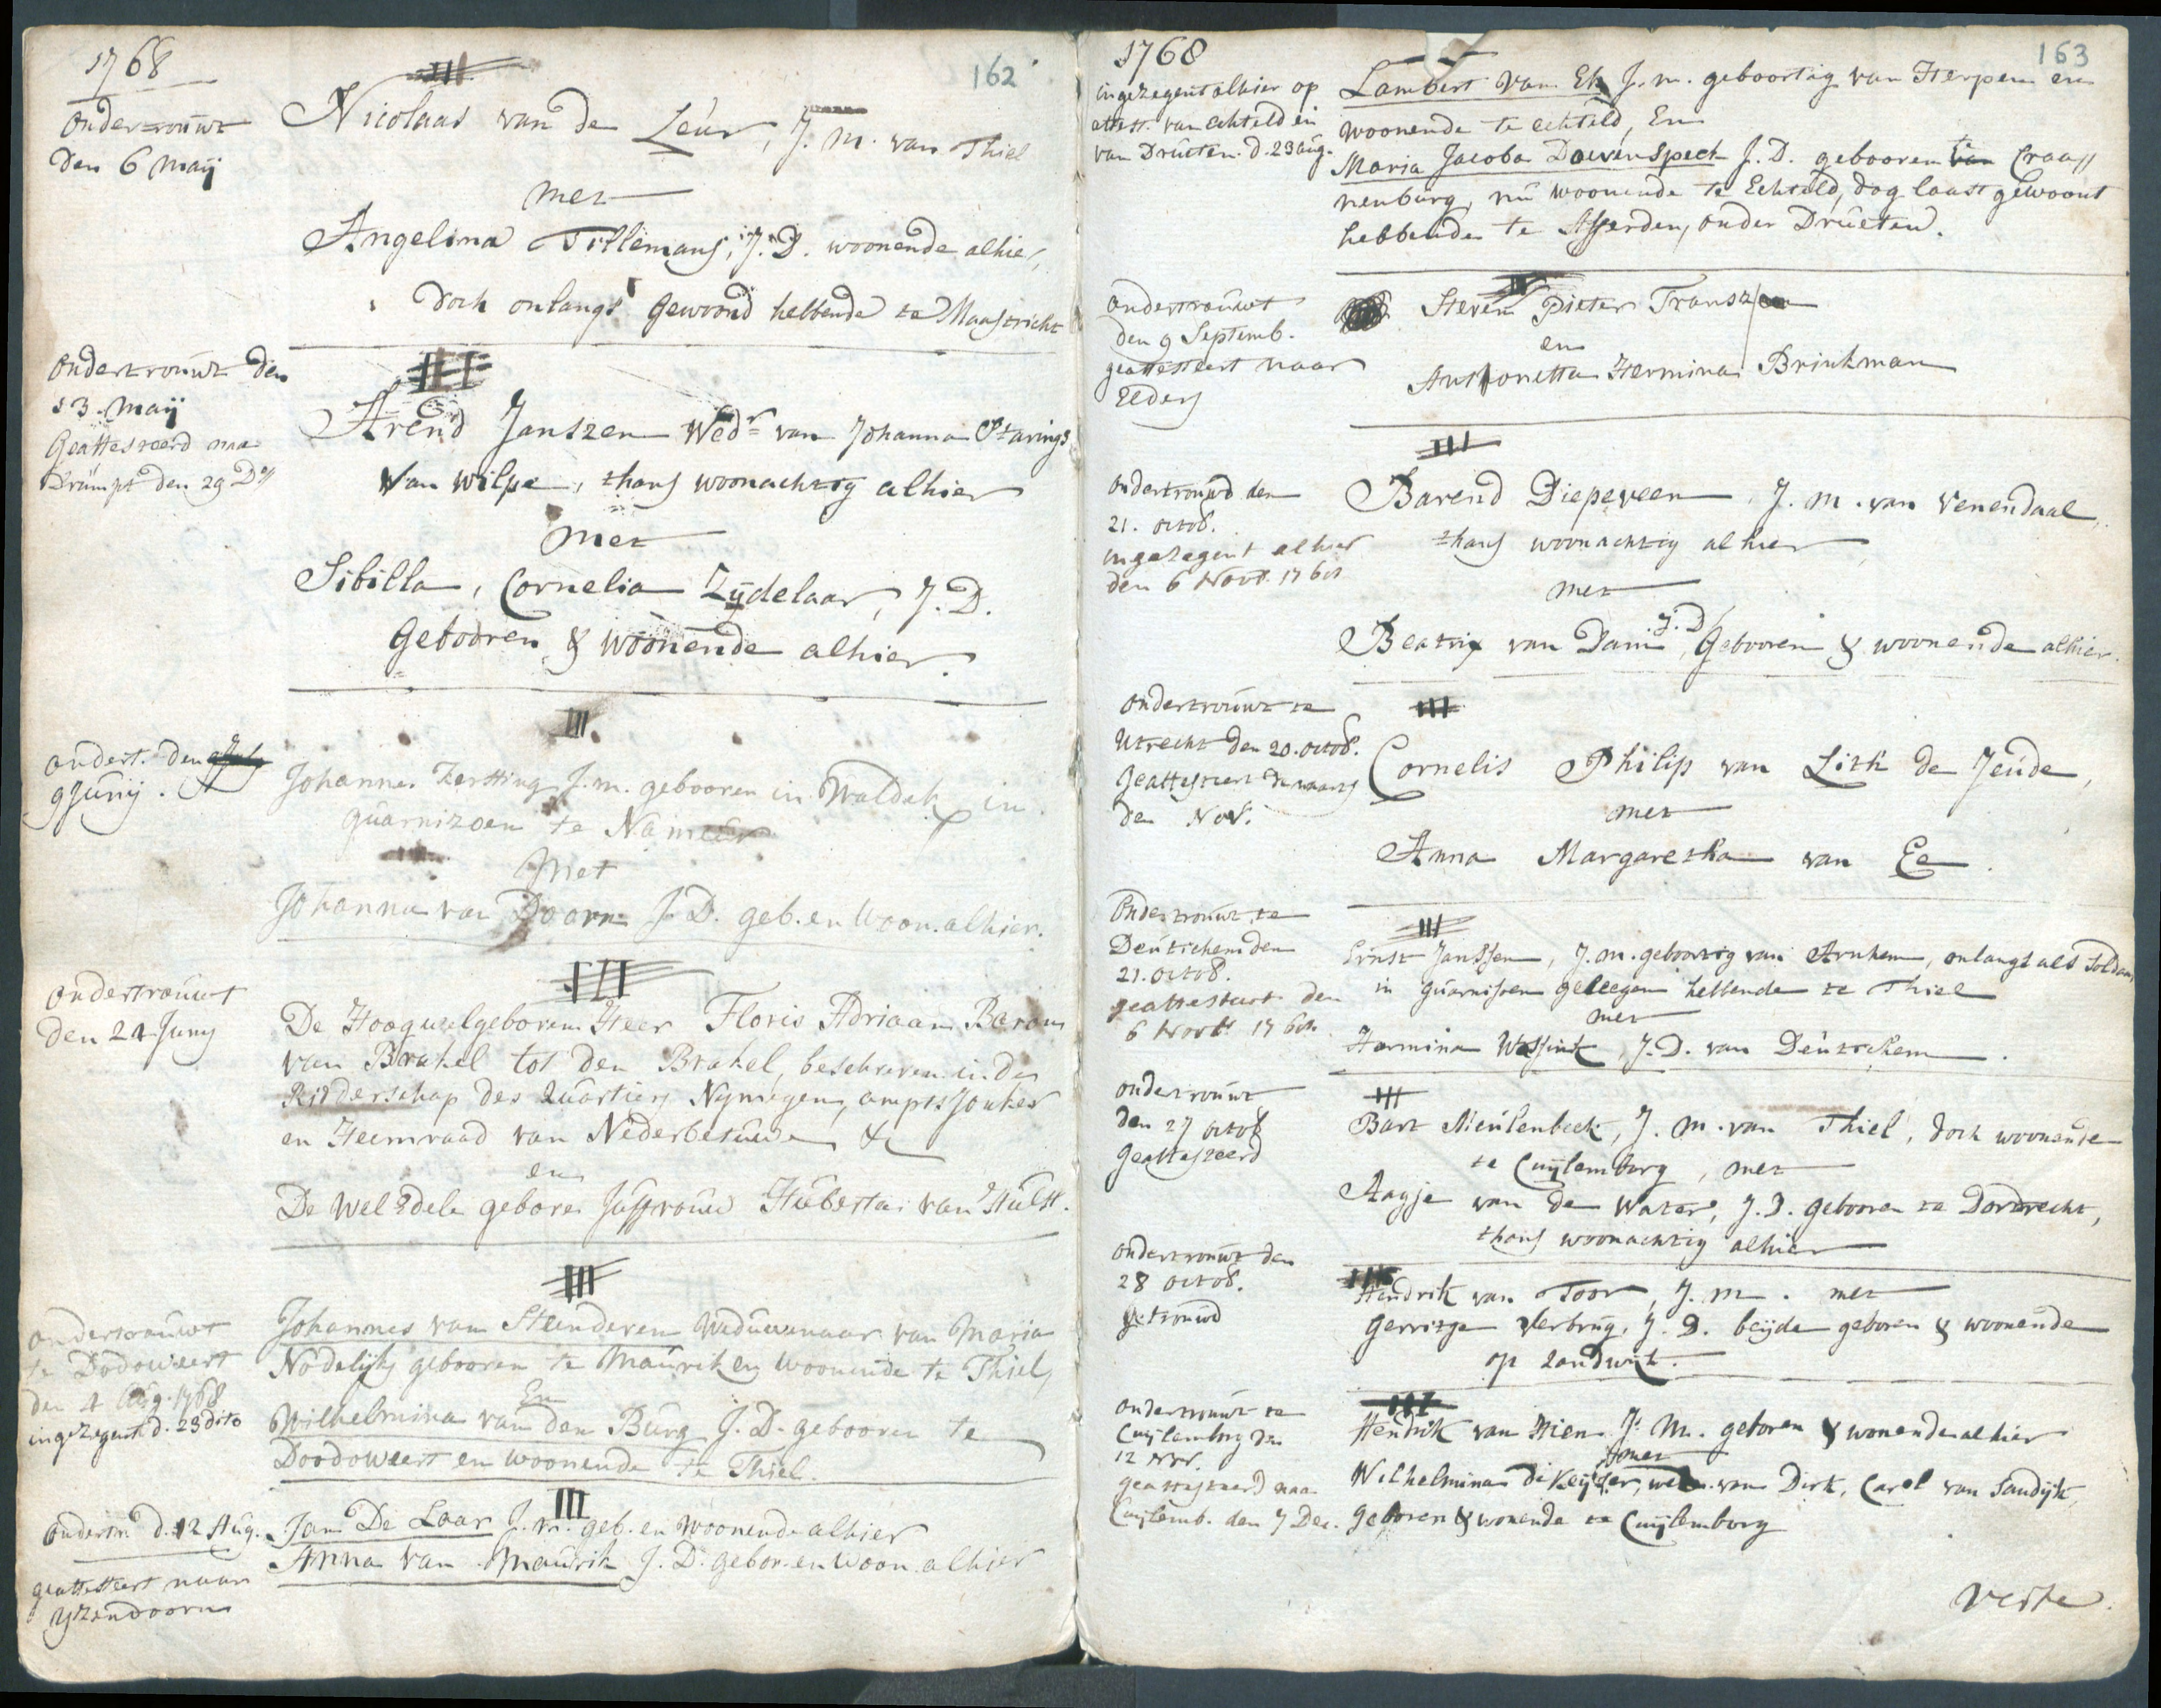 1768
162
ondertrouwt
den 6 Maij
Nicolaas van de Leur, J. M. van Thiel
met
Angelina Tillemans, J. D. woonende alhier,
doch onlangs gewoond hebbende te Maastricht
ondertrouwt den
13. Maij
Geattesteerd naa
den 29 D°
III
Arend Janszen Wedr van Johanna
van Wilpe, thans woonachtig alhier
met
Sibilla, Cornelia Zijdelaar, J. D.
Gebooren & woonende alhier.
ondert. den
9 Junij.
III
Johannes Kersting J. m. gebooren in Waldek in
guarnizoen te Namen
Met
Johanna van Doorn J. D. geb. en Woon. alhier.
ondertrouwt
den 21 Juny
III
De Hoogwelgeboren Heer Floris Adriaan Baron
van Brakel tot den Brakel, beschreven in de
Ridderschap des Quartiers Nymegen, ampts Jonker
en Heemraad van Nederbetuwe &c
en
De Wel Edele gebore Juffrouw Huberta van Hulst.
ondertrouwt
te Dodoweert
den 4 Aug. 1768
ingezegent d. 23 dito
III
Johannes van Steenderen Weduwenaar van Maria
Nodelijk gebooren te Maurik en woonende te Thiel,
En
Wilhelmina van den Burg J. D. gebooren te
Doodoweert en woonende te Thiel.
ondertr. d. 12 Aug.
geattesteert naar
Yzendoorn
III
Jan De Laar J. m. geb. en woonende alhier
Anna van Maurik J. D. gebor. en woon. alhier
1768
163
ingezegent alhier op
attest. van Echteld en
van Druten. d. 23 aug.
Lambert van Ek J. m. geboortig van Herpen en
woonende te Echteld, En
Maria Jacoba Doevenspeck J. D. gebooren te Craa
nenburg, nu woonende te Echteld, dog laast gewoont
hebbende te Afferden, onder Druten.
ondertrouwt
den 9 Septemb.
geattesteert naar
Elders
Steven Pieter Fransz
en
Anthonetta Hermina Brinkman
ondertrouwd den
21. octob.
ingezegent alhier
den 6 Novb. 1768
III
Barend Diepeveen, J. M. van Venendaal,
thans woonachtig alhier,
met
Beatrix van Dam, J. D. Gebooren & woonende alhier.
ondertrouwt te
Utrecht den 20. octob.
Geattesteert
den Nov.
III
Cornelis Philip van Lith de Jeude,
met
Anna Margaretha van Ee.
Ondertrouwt te
Deutichem den
21. octob.
geattesteert den
6 Novb. 1768
III
Ernst Janssen, J. M. geboortig van Arnhem, onlangs als Soldaat
in guarnisoen geleegen hebbende te Thiel
met
Harmina Wassink, J. D. van Deutichem.
ondertrouwt
den 27 octob
Geattesteerd
III
Bart Meulenbeek, J. M. van Thiel, doch woonende
te Cuijlemborg, met
Aagje van de Water, J. D. gebooren te Dordrecht,
thans woonachtig alhier
ondertrouwt den
28 octob.
getrouwd
III
Hendrik van Toor, J. M. met
Gerritje Verbrug, J. D. beijde geboren & woonende
op Zandwijk.
ondertrouwt te
Cuijlemborg den
12 Nov.
geattesteerd naa
Cuijlemb. den 7 Dec.
III
Hendrik van Hien J. M. geboren & wonende alhier
met
Wilhelmina de Keijzer, wed. van Dirk, Carel van Sandijk,
geboren & wonende te Cuijlemborg
verte.